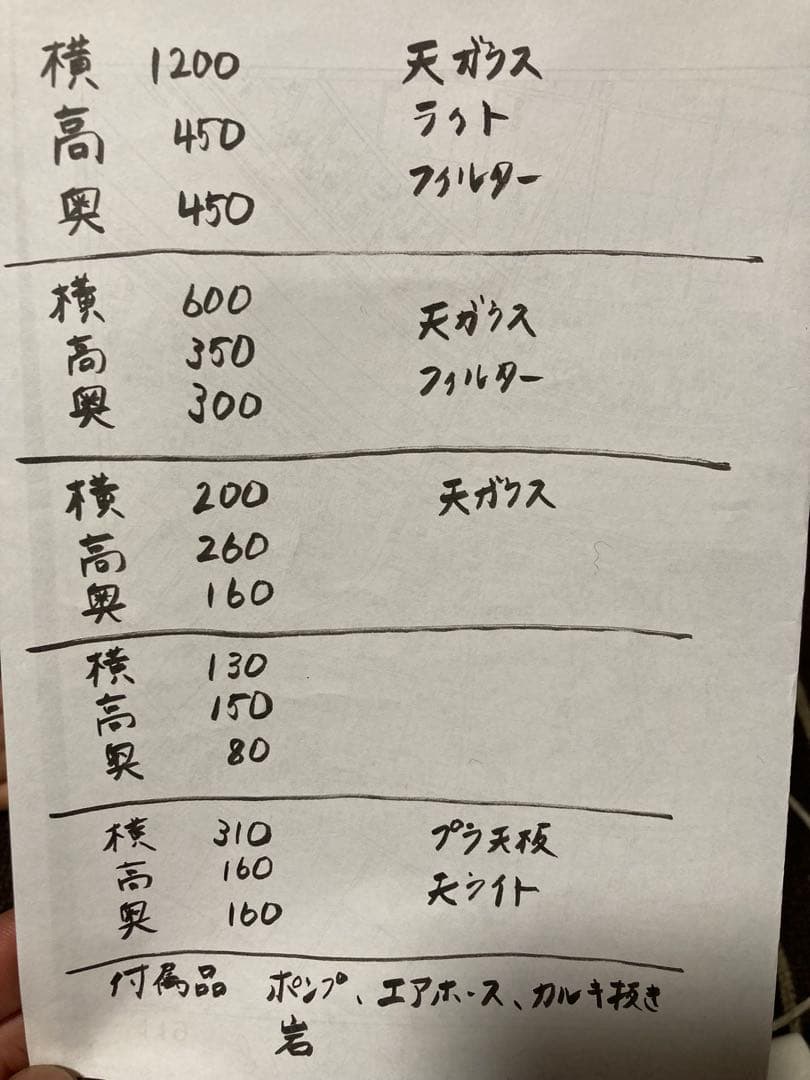 横 1200 天ガラス
高 450 ライト
奥 450 フィルター
横 600 天ガラス
高 350 フィルター
奥 300
横 200 天ガラス
高 260
奥 160
横 130
高 150
奥 80
横 310 プラ天板
高 160 天ライト
奥 160
付属品 ポンプ、エアホース、カルキ抜き
岩